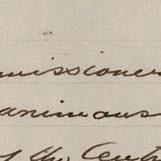 missioner
animous
of the Cent